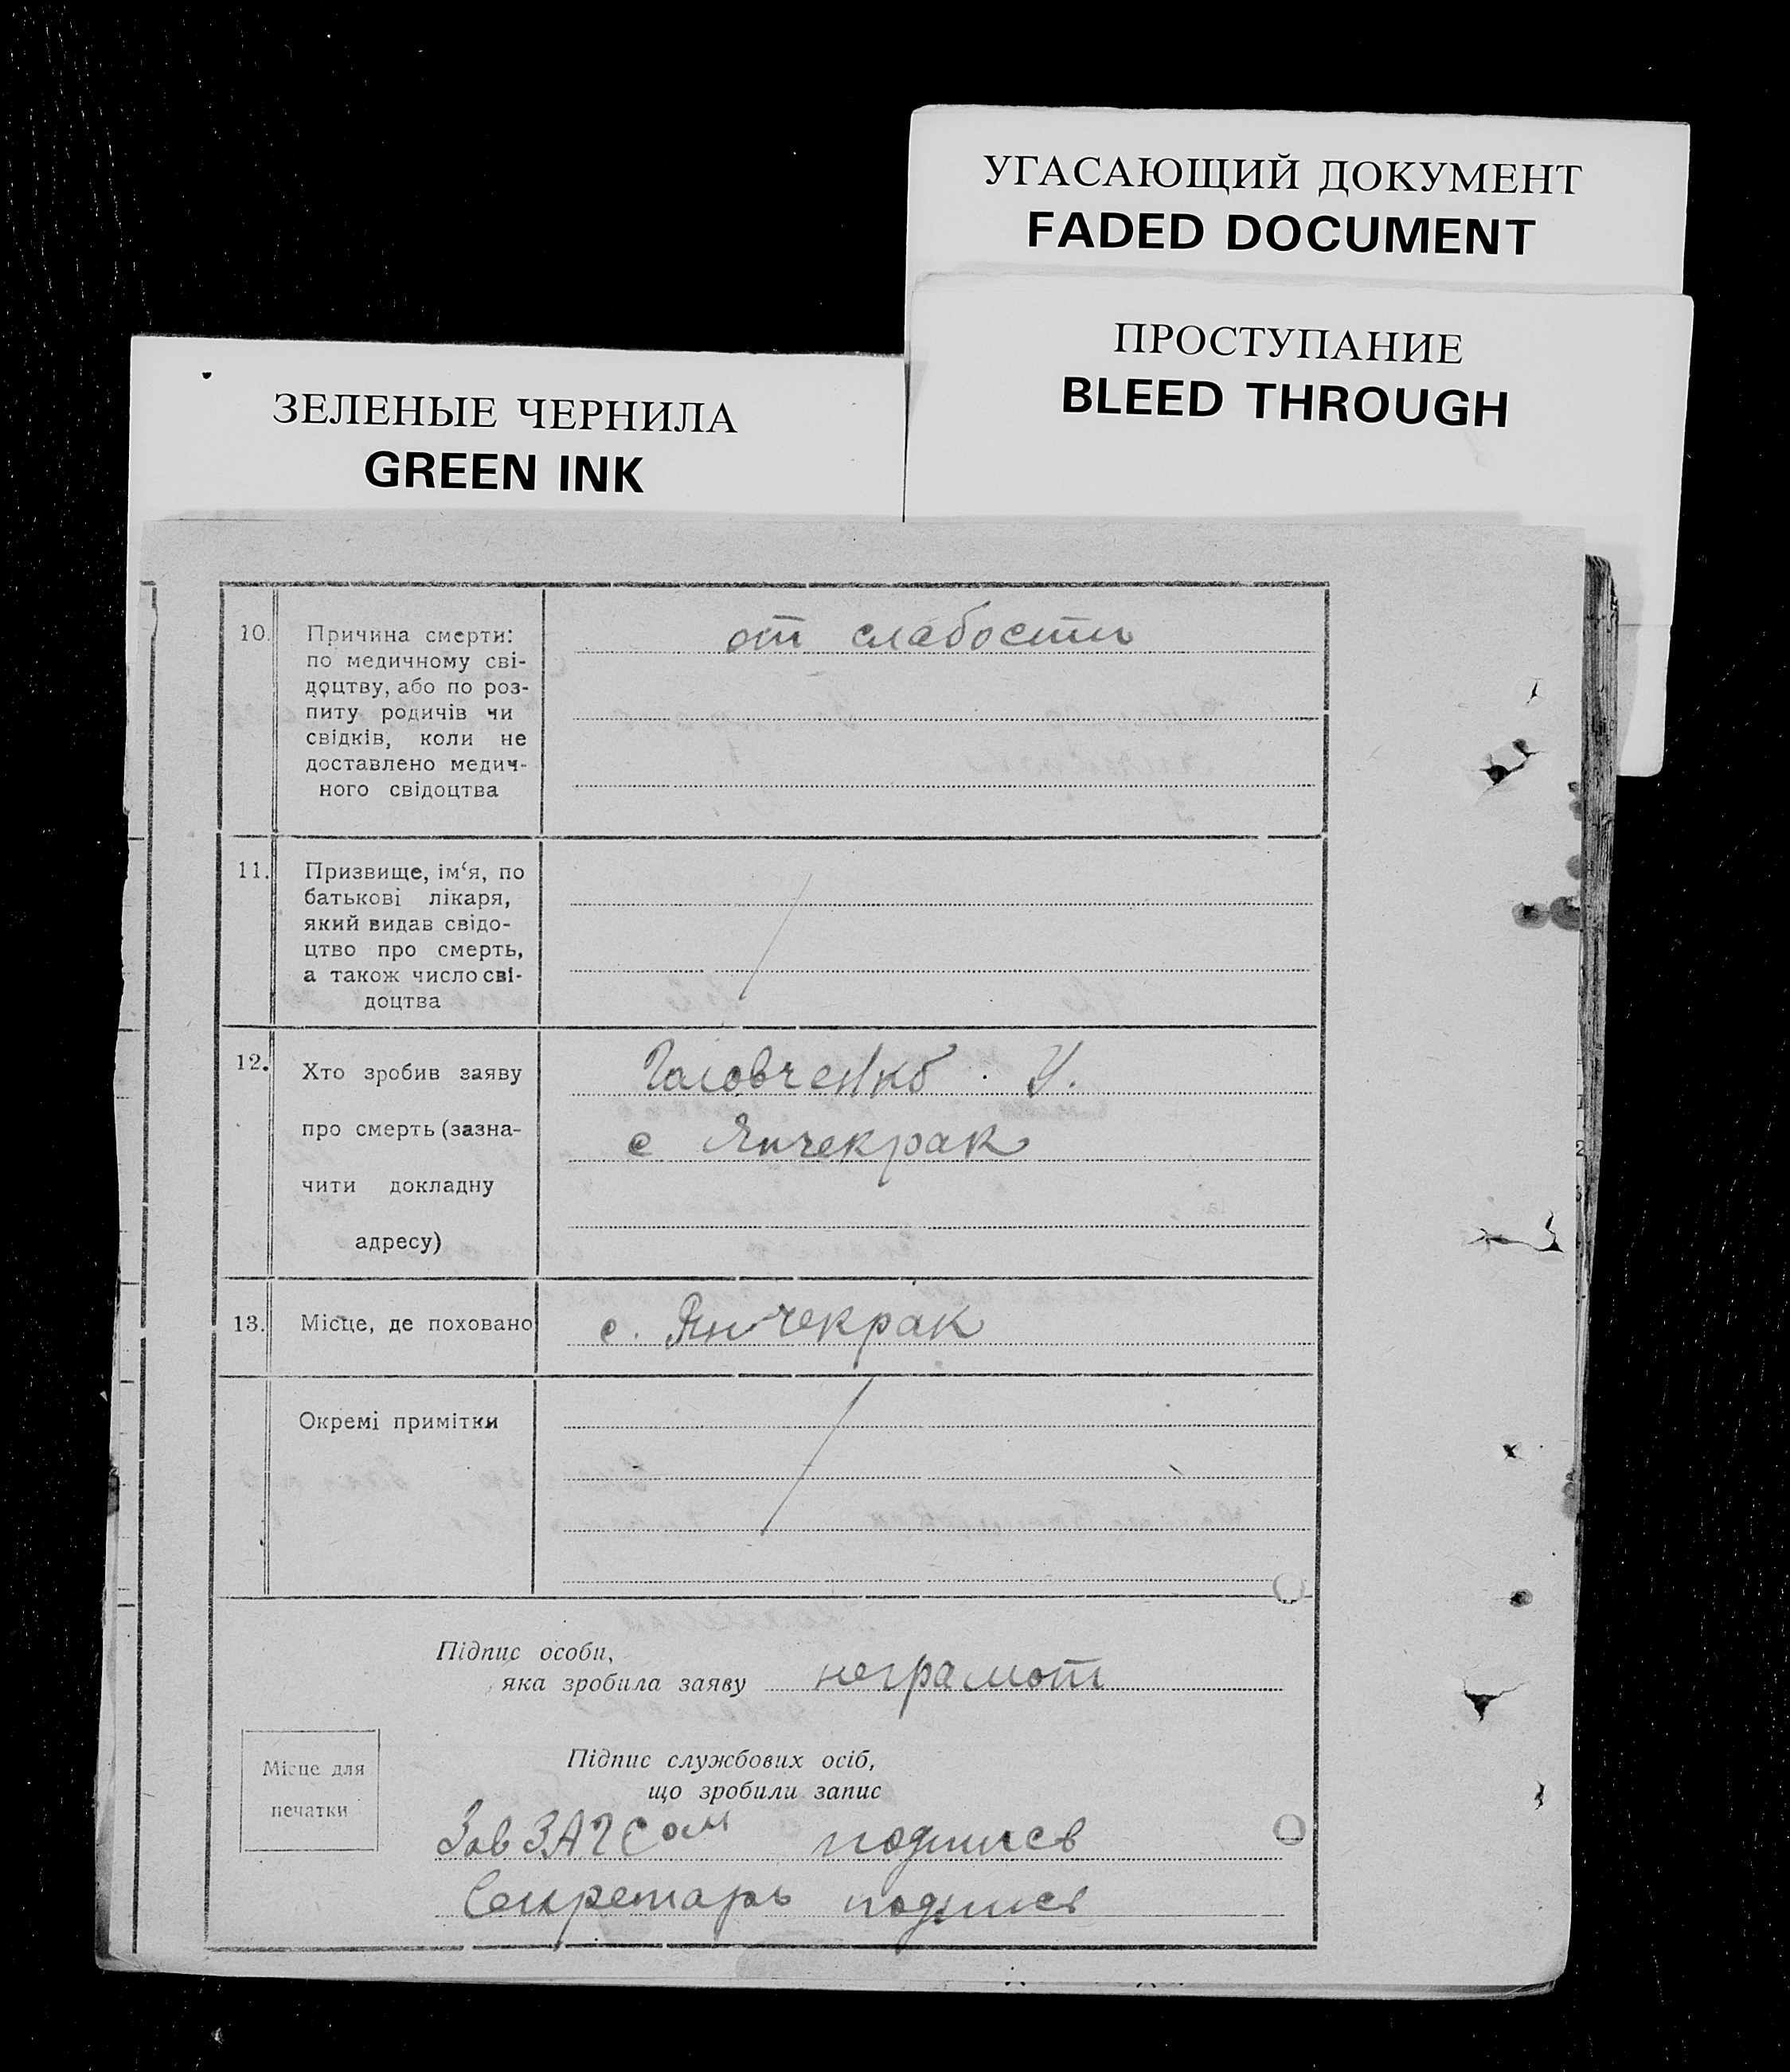 УГАСАЮЩИЙ ДОКУМЕНТ
FADED DOCUMENT
ПРОСТУПАНИЕ
BLEED THROUGH
ЗЕЛЕНЫЕ ЧЕРНИЛА
GREEN INK
10. Причина смерти: от слабости
по медичному сві-
доцтву, або по роз-
питу родичів чи
свідків, коли не
доставлено медич-
ного свідоцтва
11. Призвище, ім‘я, по
батькові лікаря,
який видав свідо-
цтво про смерть,
а також число сві-
доцтва
12. Хто зробив заяву Головченко
про смерть (зазна- с Янчекрак
чити докладну
адресу)
13. Місце, де поховано с. Янчекрак
Окремі примітки
Підпис особи,
яка зробила заяву неграмот
Місце для
печатки
Підпис службових осіб,
що зробили запис
Зав ЗАГСом подпись
Секретарь подпись